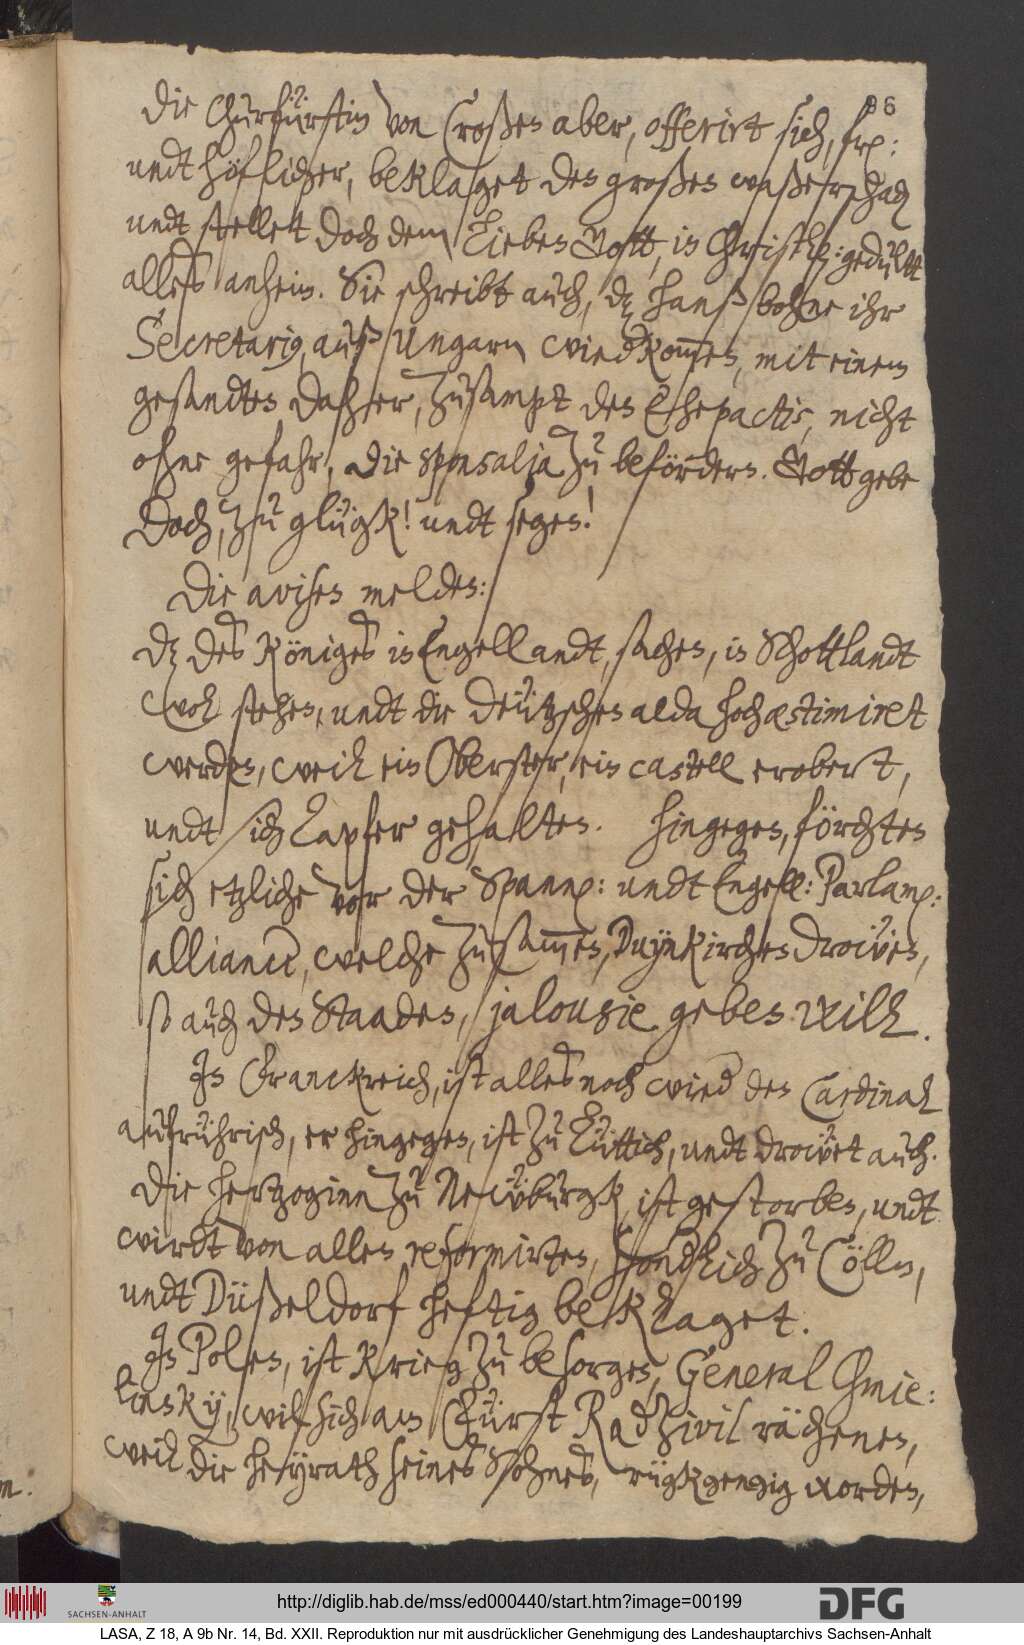 86
Die Churfürstin von Croßen aber, offerirt sich, fre:
undt höflicher, beklaget den großen waßerschaden
undt stellet doch dem Lieben Gott, in Christl: gedultt
alles anheim. Sie schreibt auch, dz Hanß bohne ihr
Secretarius, auß Ungarn wiedkom̅en, mit einem
gesandten daher, zusampt den Ehepactis, nicht
ohne gefahr, die sponsalia zu befördern. Gott gebe
doch, zu glügk! undt segen!
Die avisen melden:
dz des Königes in Engellandt, sachen, in Schottlandt
wol stehen, undt die Deützschen alda hoch æstimiret
werden, weil ein Oberster, ein castell erobert,
undt sich Tapfer gehalten. Hingegen, förchten
sich etzliche vor der Spann: undt Engell: Parlam:
alliance, welche zusam̅en, Duynkirchen drowen,
so auch den Staaden, jalousie geben will.
In Franckreich, ist alles noch wied den Cardinal
aufrührisch, er hingegen, ist zu Lüttich, undt drowet auch.
Die Hertzoginn zu Newburgk, ist gestorben, undt
wirdt von allen reformirten, sonderlich zu Cölln,
undt Düßeldorf heftig beklaget.
In Polen, ist Krieg zu besorgen, General Chmie:
linsky, wil sich am Fürst Radzivil rächenen,
weil die heyrath seines Sohnes, rügkgengig worden,
n.
SACHSEN-ANHALT
http://diglib.hab.de/mss/ed000440/start.htm?image=00199
DFG
LASA, Z 18, A 9b Nr. 14, Bd. XXII. Reproduktion nur mit ausdrücklicher Genehmigung des Landeshauptarchivs Sachsen-Anhalt